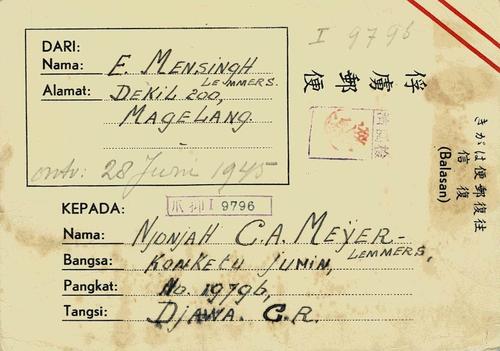 I 9796
DARI:
Nama: E. MENSINGH
LEMMERS.
Alamat: DEKIL 200,
MAGELANG
ontv: 28 Juni 1945
便郵虜俘
きがは便郵復往
信復
(Balasan)
爪抑I 9796
KEPADA:
Nama: NJONJAH C.A. MEYER-
LEMMERS,
Bangsa: KONKETU JUMIN,
Pangkat: No. 19796,
Tangsi: DJAWA. C.R.